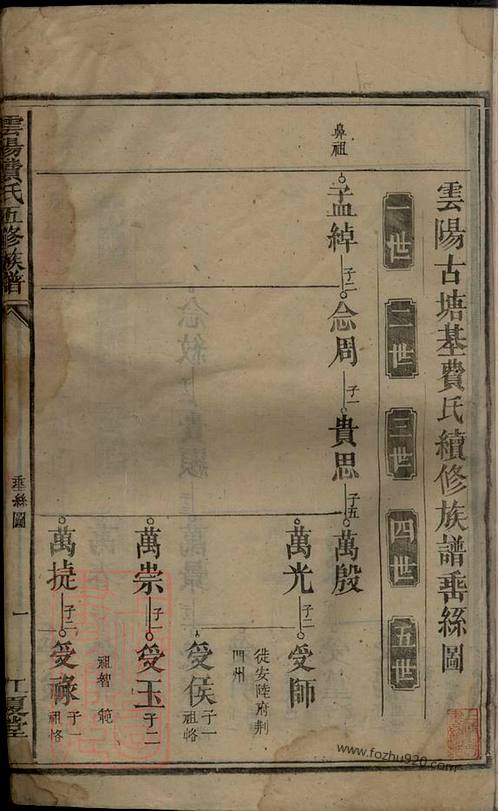 雲陽古塘基費氏續修族譜垂絲圖
一世
二世
三世
四世
五世
鼻祖
孟綽
子二
念周
子一
貴思
子五
萬殷
萬光
子二
受師
徙安陸府荆
門州
受侯
子一
祖恪
萬崇
子一
受玉
子二
祖智 範
萬捷
子二
受祿
子一
祖恪
雲陽費氏五修族譜
垂絲圖
一
江夏堂
www.fozhu920.com